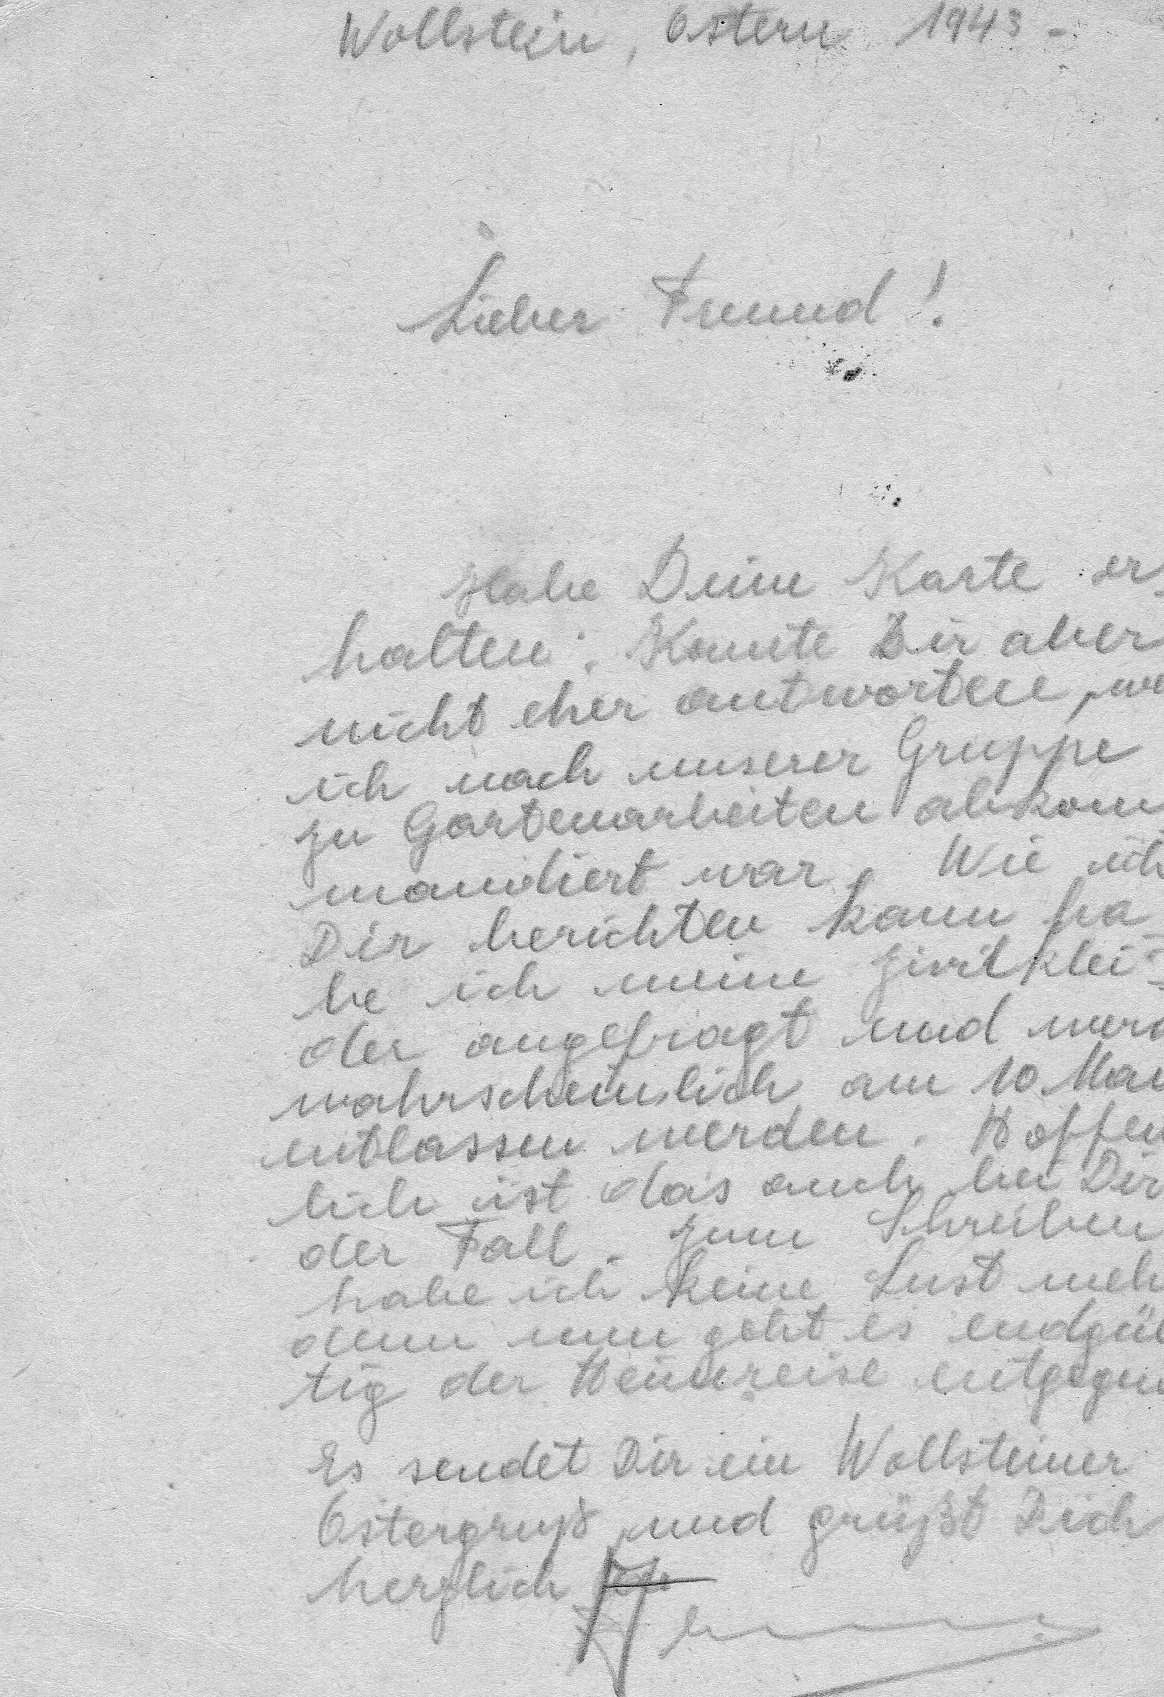 Wollstein, Ostern 1943 -
Lieber Freund!
Habe Deine Karte er-
halten. Konnte Dir aber
nicht eher antworten, we
ich nach unserer Gruppe
zu Gartenarbeiten abkom
mandiert war. Wie ich
Dir berichten kann ha-
be ich meine Zivilklei-
der angefragt und werd
wahrscheinlich am 10 Mai
entlassen werden. Hoffen
lich ist das auch bei Dir
der Fall. Zum Schreiben
habe ich keine Lust meh
denn nun geht es endgül
tig der Heimreise entgegen
Es sendet Dir ein Wollsteiner
Ostergruß und grüßt Dich
herzlich